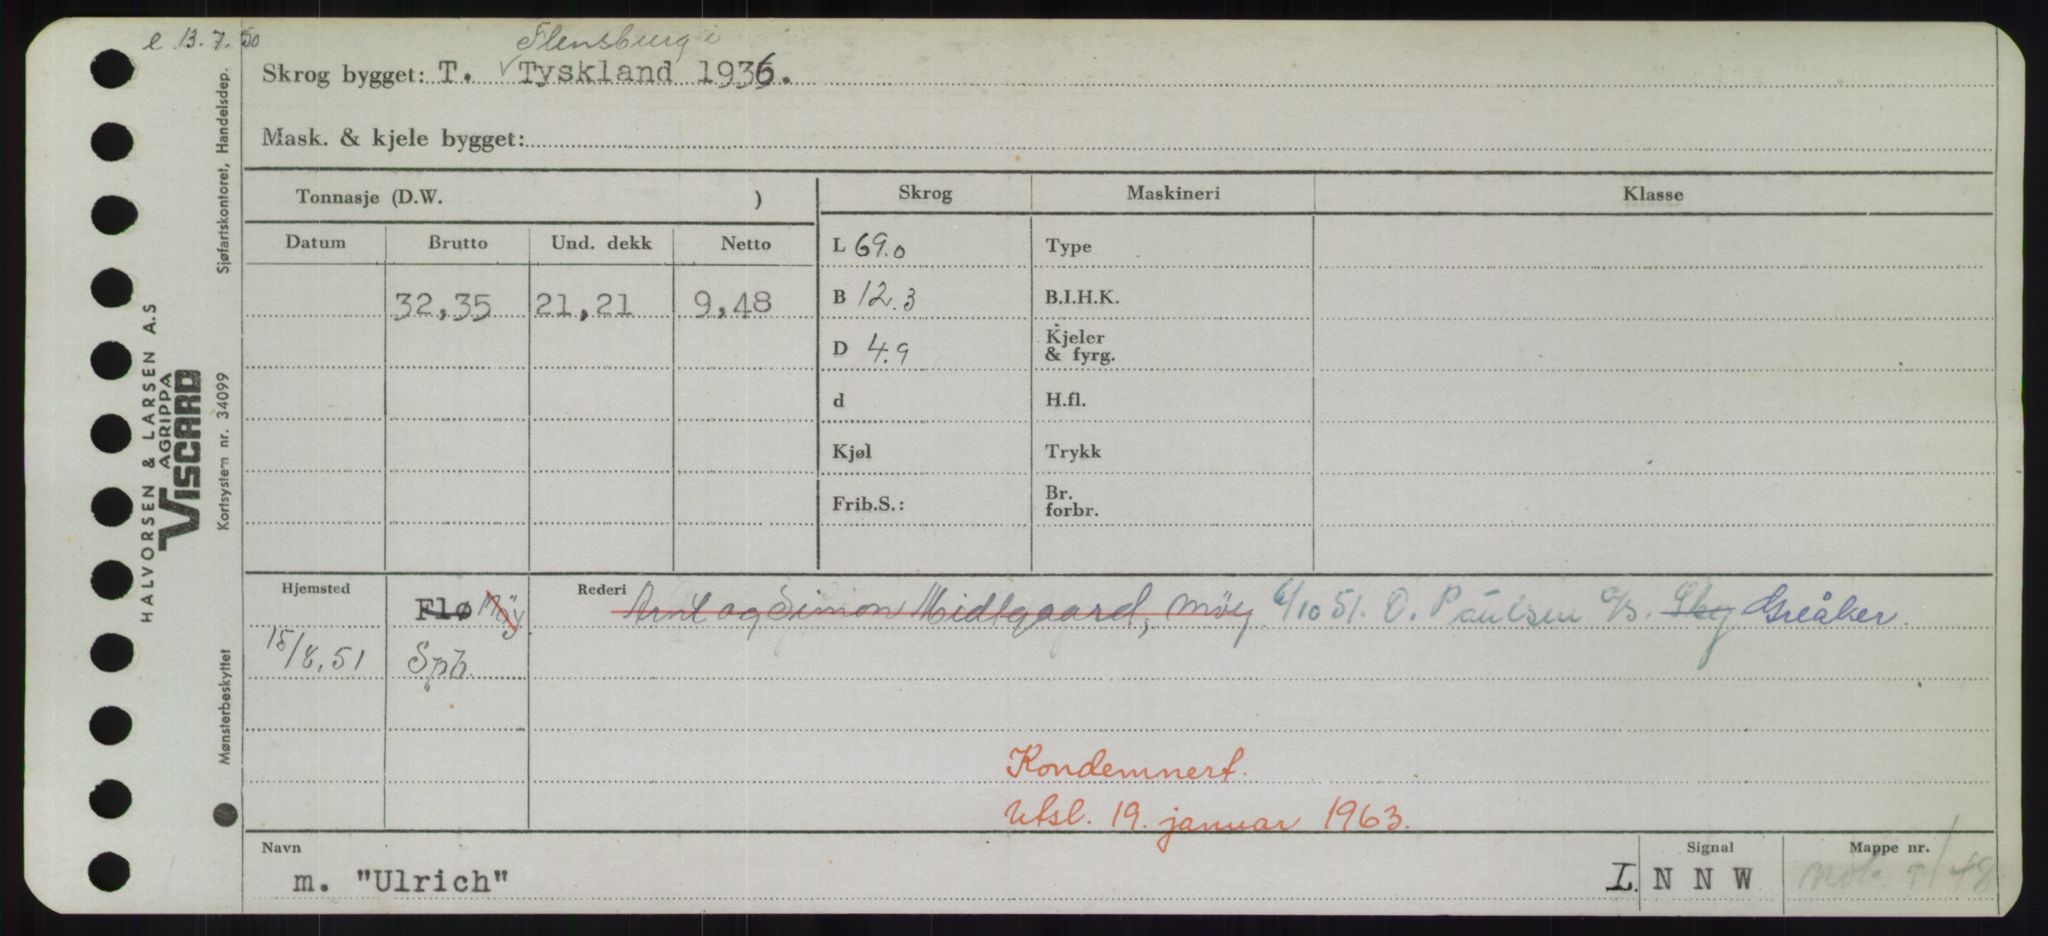 e 13.7.50
Flensburg i
Skrog bygget: T. Tyskland 1936.
Mask. & kjele bygget:
Tonnasje (D.W. )
Skrog
Maskineri
Klasse
Datum
Brutto
Und. dekk
Netto
L 69.0
Type
32,35
21,21
9,48
B 12.3
B.I.H.K.
D 4.9
Kjeler & fyrg.
d
H.fl.
Kjøl
Trykk
Frib.S.:
Br. forbr.
Hjemsted
Flø Møy
Rederi
Arnt og Simon Midtgaard, Møy 6/10 51. O. Paulsen A/S. Greåker.
15/8.51
Spb.
Kondemnert.
Utsl. 19. januar 1963.
Navn
m. "Ulrich"
Signal
L N N W
Mappe nr.
Sjøfartskontoret, Handelsdep.
Kortsystem nr. 34099
Mønsterbeskyttet
HALVORSEN & LARSEN A.S
AGRIPPA
VISCARD